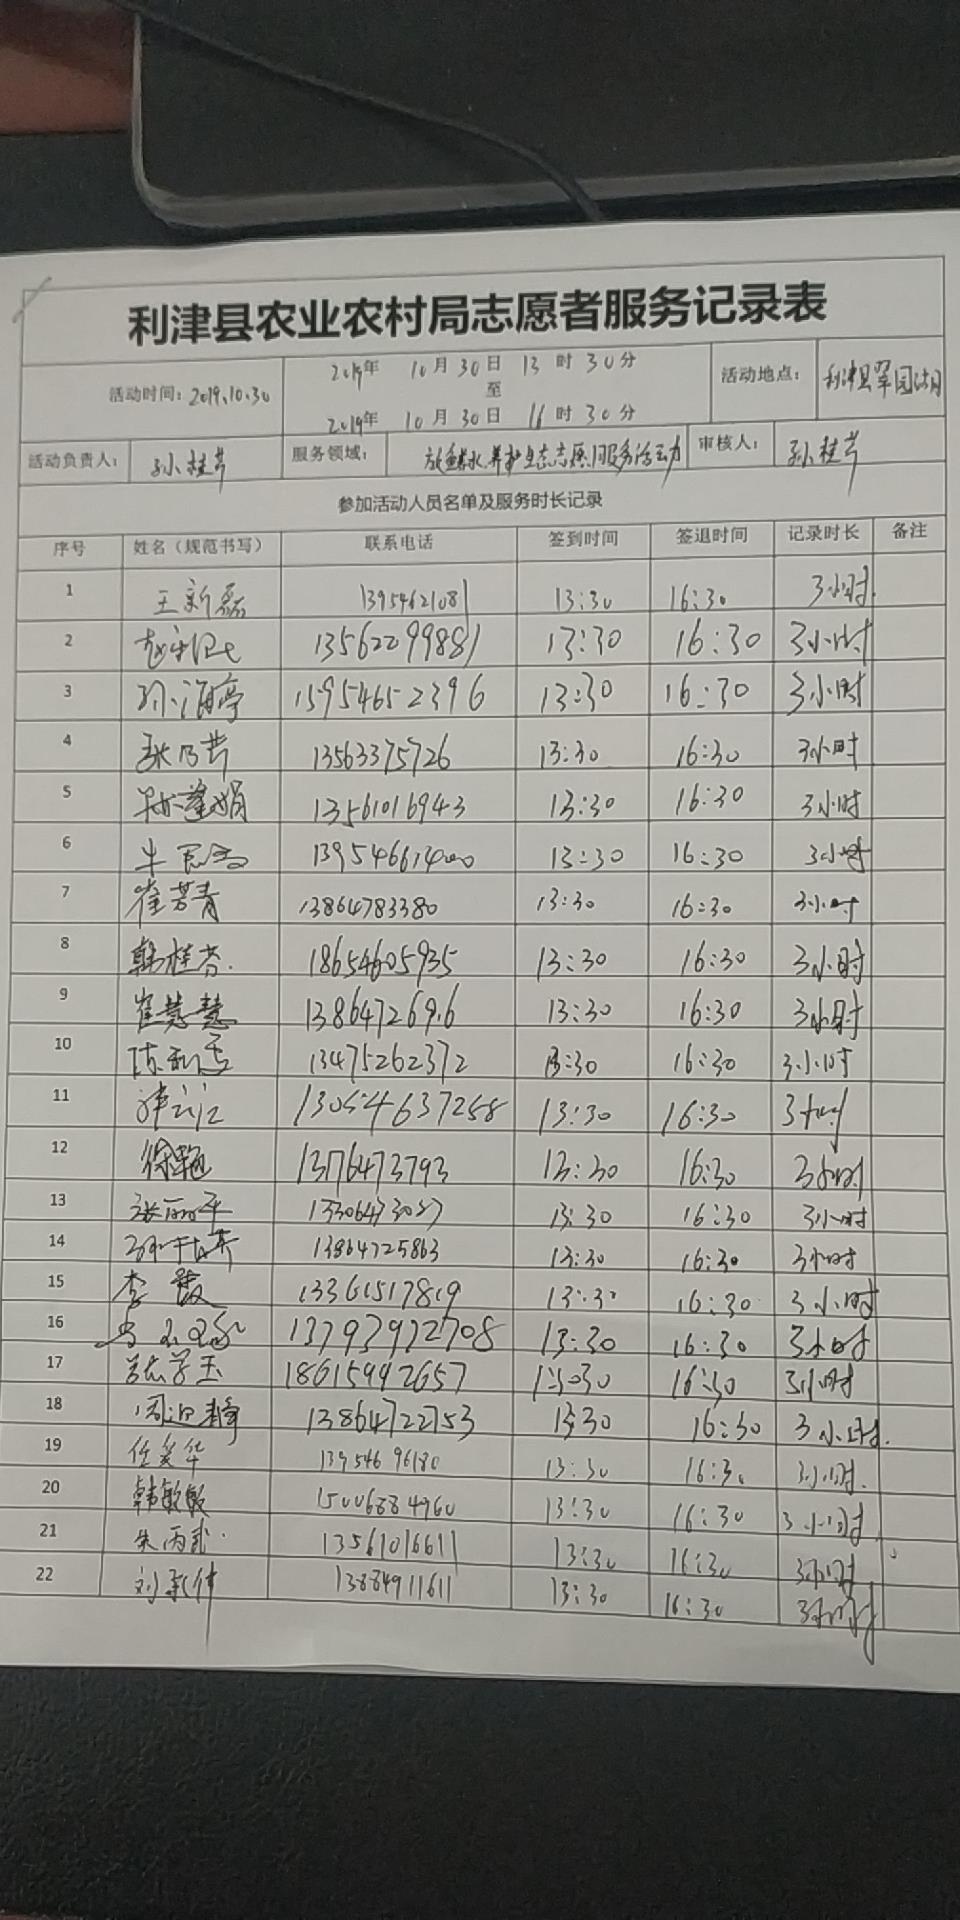 利津县农业农村局志愿者服务记录表
活动时间：2019.10.30
2019年 10月30日 13时30分
至
2019年 10月30日 16时30分
活动地点：
利津县
活动负责人： 孙桂芹 服务领域： 放鱼养水 养护生态志愿服务活动 审核人： 孙桂芹
参加活动人员名单及服务时长记录
序号 姓名（规范书写） 联系电话 签到时间 签退时间 记录时长 备注
1 王新磊 13954621081 13:30 16:30 3小时
2 13562299881 13:30 16:30 3小时
3 孙海亭 15954652396 13:30 16:30 3小时
4 13563375726 13:30 16:30 3小时
5 13561016943 13:30 16:30 3小时
6 13:30 16:30 3小时
7 崔芳青 13864783380 13:30 16:30 3小时
8 韩桂芬 18654605935 13:30 16:30 3小时
9 崔慧慧 13:30 16:30 3小时
10 13475262372 13:30 16:30 3小时
11 13054637258 13:30 16:30 3小时
12 徐艳 13176473793 13:30 16:30 3小时
13 张丽平 13:30 16:30 3小时
14 13864725863 13:30 16:30 3小时
15 李霞 13361517819 13:30 16:30 3小时
16 13793972708 13:30 16:30 3小时
17 18615992657 13:30 16:30 3小时
18 13864722753 13:30 16:30 3小时
19 任美华 13954696180 13:30 16:30 3小时
20 韩敏敏 15006884960 13:30 16:30 3小时
21 朱丙武 13561016611 13:30 16:30 3小时
22 13884911611 13:30 16:30 3小时